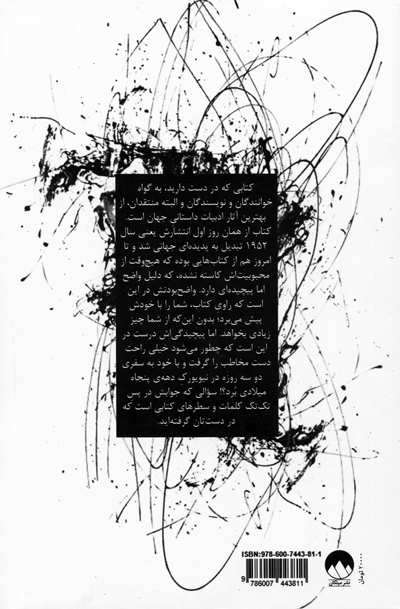 کتابی که در دست دارید، به گواه
خوانندگان و نویسندگان و البته منتقدان، از
بهترین آثار ادبیات داستانی جهان است.
کتاب از همان روز اول انتشارش یعنی سال
۱۹۵۲ تبدیل به پدیده‌ای جهانی شد و تا
امروز هم از کتاب‌هایی بوده که هیچ‌وقت از
محبوبیت‌اش کاسته نشده، که دلیل واضح
اما پیچیده‌ای دارد. واضح‌بودنش در این
است که راوی کتاب، شما را با خودش
پیش می‌برد؛ بدون این‌که از شما چیز
زیادی بخواهد. اما پیچیدگی‌اش درست در
این است که چطور می‌شود خیلی راحت
دست مخاطب را گرفت و با خود به سفری
دو سه روزه در نیویورک دهه‌ی پنجاه
میلادی بُرد؟! سؤالی که جوابش در پس
تک‌تک کلمات و سطرهای کتابی است که
در دست‌تان گرفته‌اید.
ISBN:978-600-7443-81-1
9 786007 443811
نشر میلکان
۲۰۰۰۰ تومان